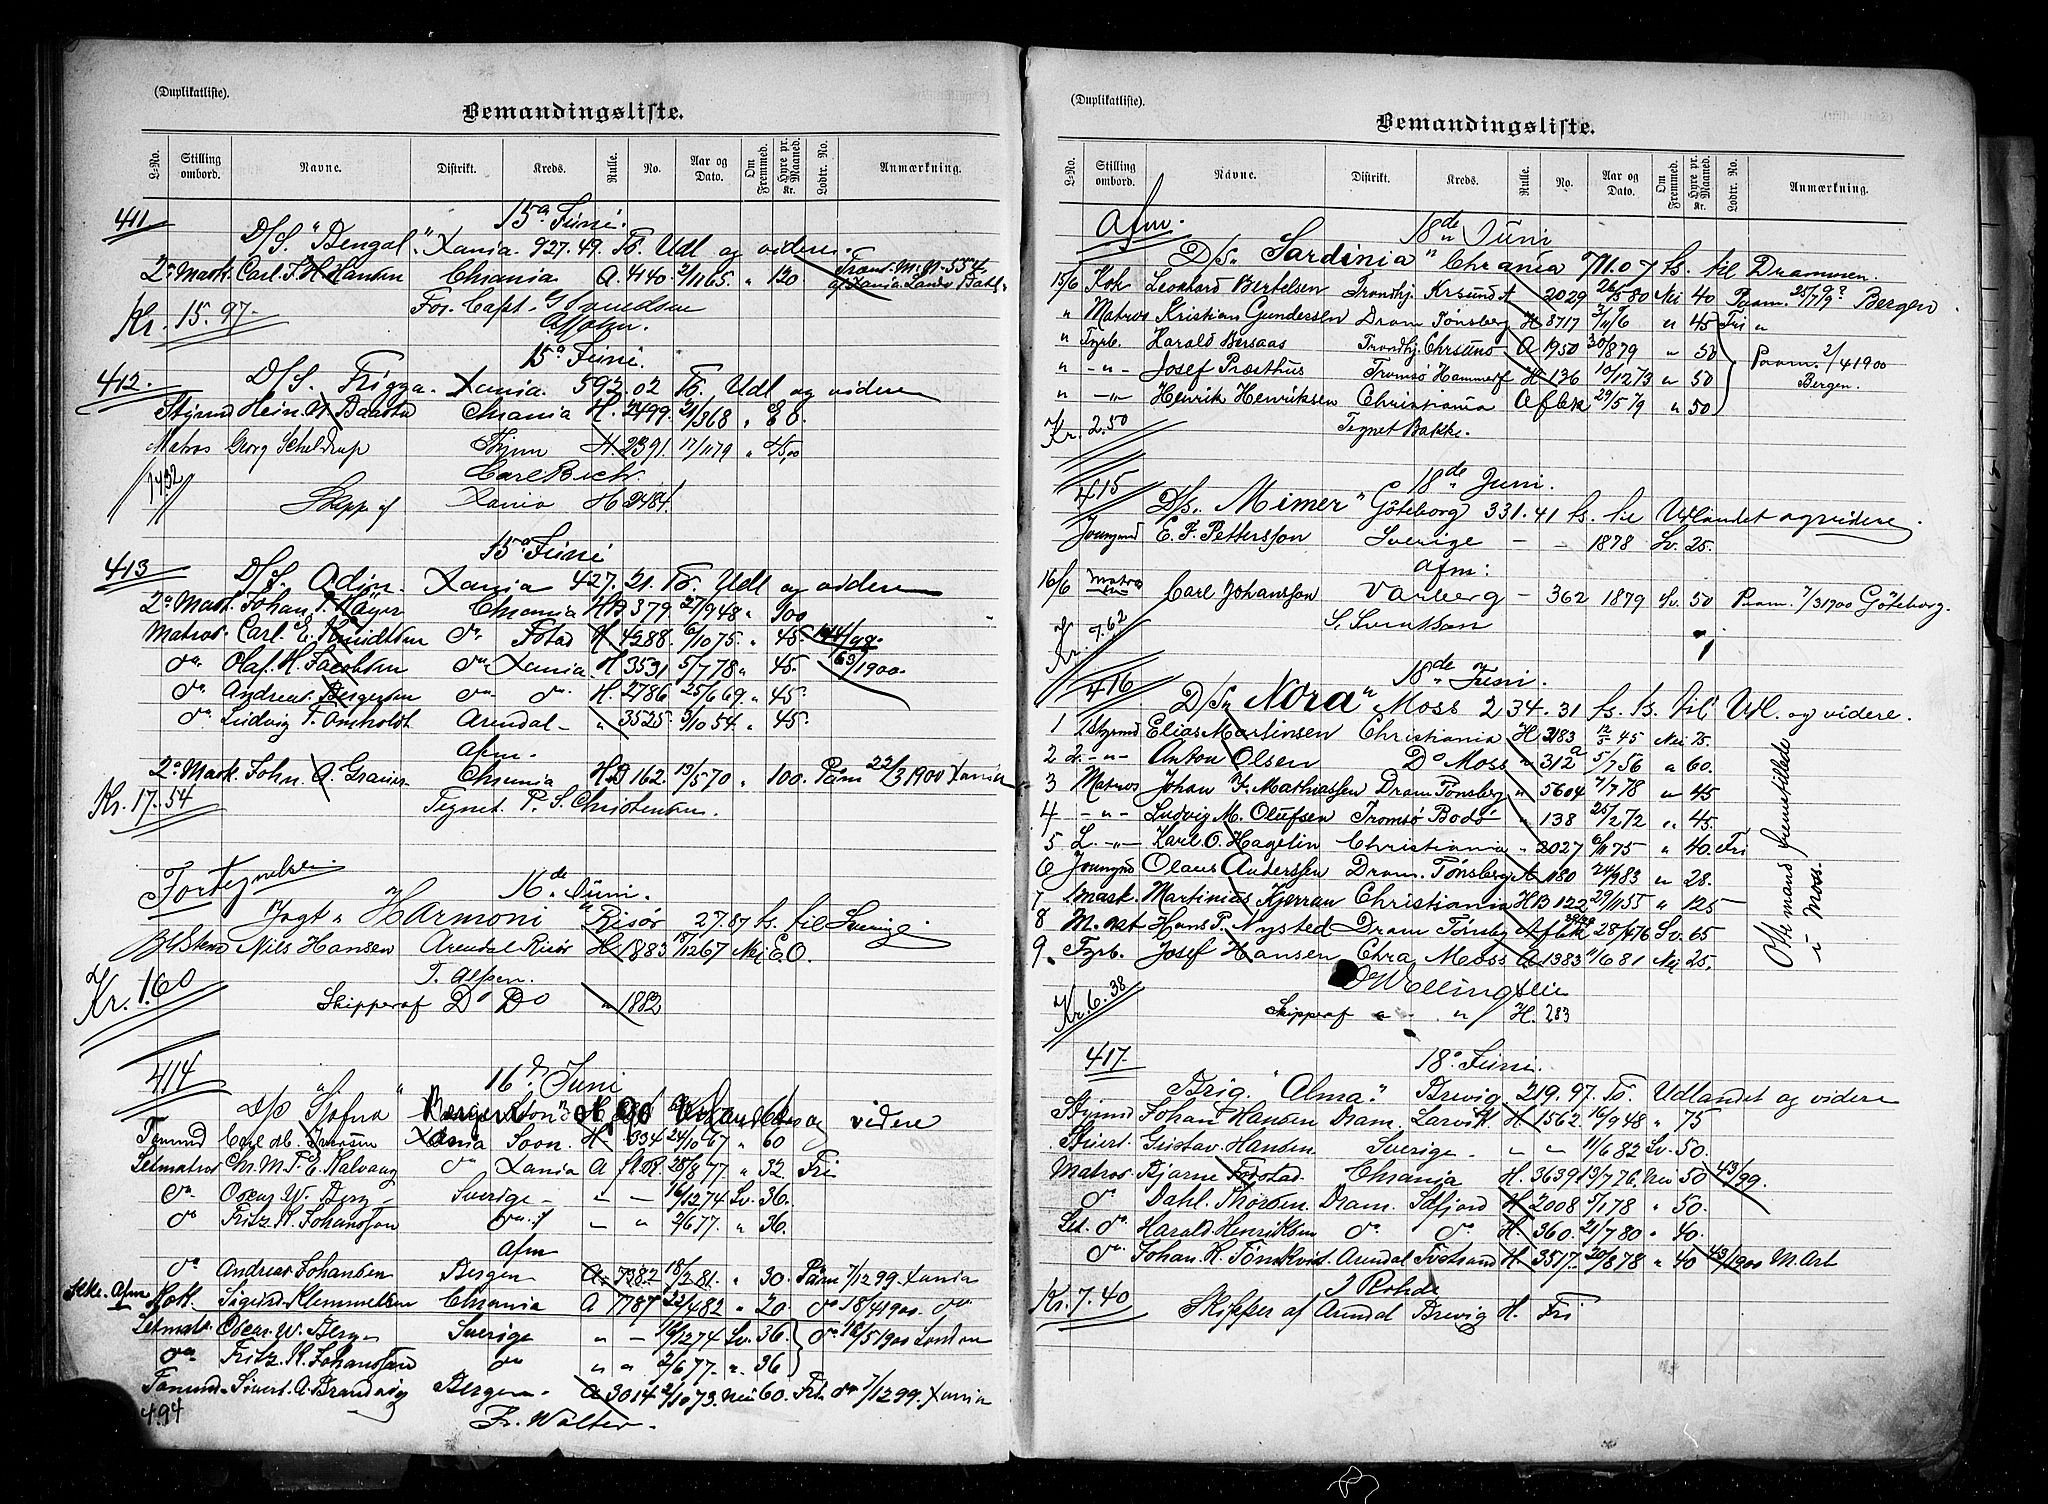 (Duplikatliste).
Bemandingsliste.
L-No. Stilling ombord. Navne. Distrikt. Kreds. Rulle. No. Aar og Dato. Om Fremmed. Hyre pr. Maaned. Kr. Lodtr. No. Anmærkning.
411 15de Juni.
D/S. "Bengal". Xania. 927.49. To. Udl og videre.
2' Mask. Carl. F. H. Hansen Chrania A. 4140 2/11 65. " 120
For Capt. G
Kr. 15.97.
15de Juni.
412. D/S. Frigga. Xania. 592.02 To. Udl og videre
Styrmd Hein. A. Baastad Chrania H. 2499. 21/3 68 " E O.
Matros Georg Scheldrup H. 2391. 17/11 79 " 45,00
Carl Bech.
Skipp af Xania H 2484.
15de Juni
413 D/S. Odin. Xania 427.21. To. Udl og videre
2' Mask. Johan P. Høyer Chrania HB 379 27/9 48 " 100
Matros. Carl. E. Knudtsen do Fstad H. 4288. 6/10 75. " 45.
do. Olaf. H. Jacobsen do Xania H. 3531 5/7 78 " 45.
do. Andreas Bergersen do. do. H. 2786 25/6 69 " 45.
do Ludvig T. Omholdt Arendal - " 3525. 3/10 54 " 45.
afm.
2' Mask. John. A. Chrania HB 162. 13/5 70 " 100. Paam 22/3 1900 Xania
Kr. 17.54 Tegnet P. S. Christensen.
Fortegnelse
16de Juni.
Jagt "Harmoni" Risør 27.87 ts. til Sverige.
Niels Hansen Arendal Risør H. 1883 18/12 67 Nei E.O.
Kr. 1.60 Skipper af Do Do " 1882
414 16de Juni
D/S "Sjofna" Bergen og videre
Carl M. Xania Soon. H. 334 24/10 67 " 60
Letmatros Chr. M. T. E. Kalvaag do Xania A 28/8 77 " 32. Fri
do. Oscar W. Berg - Sverige - " - 16/12 74 Sv. 36.
do Fritz. K. Johansson do. " " 2/6 77. " 36.
afm
do Andreas Johansen Bergen A. 7382 18/2 81. " 30. Paam 7/12 99. Xania
afm Kok. Sigurd Klemmetsen Chrania A 7787 22/4 82 " 20. do 18/4 1900. do
Letmatr. Oscar. W. Berg Sverige " - 16/12 74 Sv. 36. do 16/5 1900 London
do Fritz. K. Johansson do " " 2/6 77. " 36
Sivert. A. Brandvig Bergen - A 3014 2/10 73. Nei 60. Fri do 7/12 99. Xania
4.94 Fr. Walter.
(Duplikatliste).
Bemandingsliste.
L-No. Stilling ombord. Navne. Distrikt. Kreds. Rulle. No. Aar og Dato. Om Fremmed. Hyre pr. Maaned. Kr. Lodtr. No. Anmærkning.
Afm. 18de Juni
D/S "Sardinia" Chrania 711.07 ts. til Drammen.
15/6 Kok Leonhard Bertelsen Trondhj. Krsund A 2029 26/5 80 Nei 40 Paam. Bergen
" Matros Kristian Gundersen Dram Tønsberg H 8717 " 45 Fri "
" Fyrb. Harald Bersaas Trondhj. Chrsund A 1950 30/8 79 " 50 Paam. 2/4 1900
" - " - Josef Præsthus Tromsø Hammerf H 136 10/12 73 " 50 Bergen.
" - " - Henrik Henriksen Christiania Afbk 29/5 79 " 50
Kr. 2.50 Tegnet Bakke.
415 18de Juni.
D/S. "Mimer" Göteborg 331.41 ts. til Udlandet og videre.
Jungmd E. F. Pettersson Sverige - - 1878 Sv. 25.
Afm:
16/6 Matros Carl Johansson Varberg - 362 1879 Sv. 50 Paam. 7/3 1900 Göteborg.
Kr. 9.62 S. Svensson
416 18de Juni.
D/S "Nora" Moss 234.31 ts. til Udl. og videre.
1 1 Styrmd Elias Martinsen Christiania H 3183 12/5 45 Nei 75.
2 2. - " - Anton Olsen Do Moss " 312 5/7 56 " 60.
3 Matros Johan F. Mathiassen Dram Tønsberg " 5604 7/7 78 " 45
4 - " - Ludvig M. Olufsen Tromsø Bodø " 138 25/2 72 " 45.
5 L. - " - Karl O. Hagelin Christiania " 2027 6/11 75 " 40. Fri
6 Jungmd Olaus Anderssen Dram. Tønsberg A 1180 24/9 83 " 28.
7 1 mask. Martinius Kjerran Christiania HB 122 29/11 55 " 125
8 M. ast Hans P. Nysted Dram Tønsbg Afbk 28/4 76 Sv. 65
9. Fyrb. Josef Hansen Chra Moss A 1383 11/6 81 Nei 25.
Otte mand fremstillede i Moss.
Kr. 6.38 Skipper af " " H. 283
417. 18de Juni.
Brig. "Alma" Brevig 219.97. To. Udlandet og videre
Styrmd Johan Hansen Dram. Larvik H. 1562 16/9 48 " 75
Stuert. Gustav. Hansen Sverige. " " 11/6 82 Sv. 50.
Matros Bjarne Forstad Chrania H. 3639 19/7 76 Nei 50 43/99.
do Dahl. Thorsen Dram. Safjord H 2008 5/1 78 " 50.
Let. do Harald Henriksen do do H. 360. 21/7 80 " 40.
do. Johan K. Tørnkvist Arendal Tvestrand H. 3517. 20/8 78 " 40 43/1900 M. Art
J Rohde
Kr. 7.40 Skipper af Arendal Brevig H. Fri